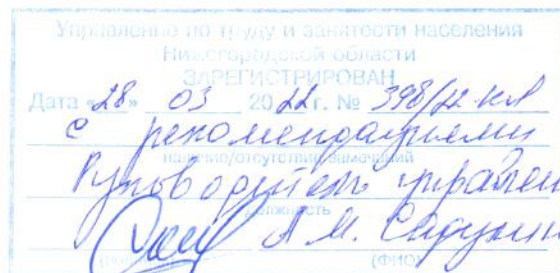 Управление по труду и занятости населения
Нижегородской области
ЗАРЕГИСТРИРОВАН
Дата «28» 03 2022 г. № 398/22-кл
с рекомендациями
наличие/отсутствие замечаний
Руководитель управлен
должность
А.М.
(подпись) (ФИО)